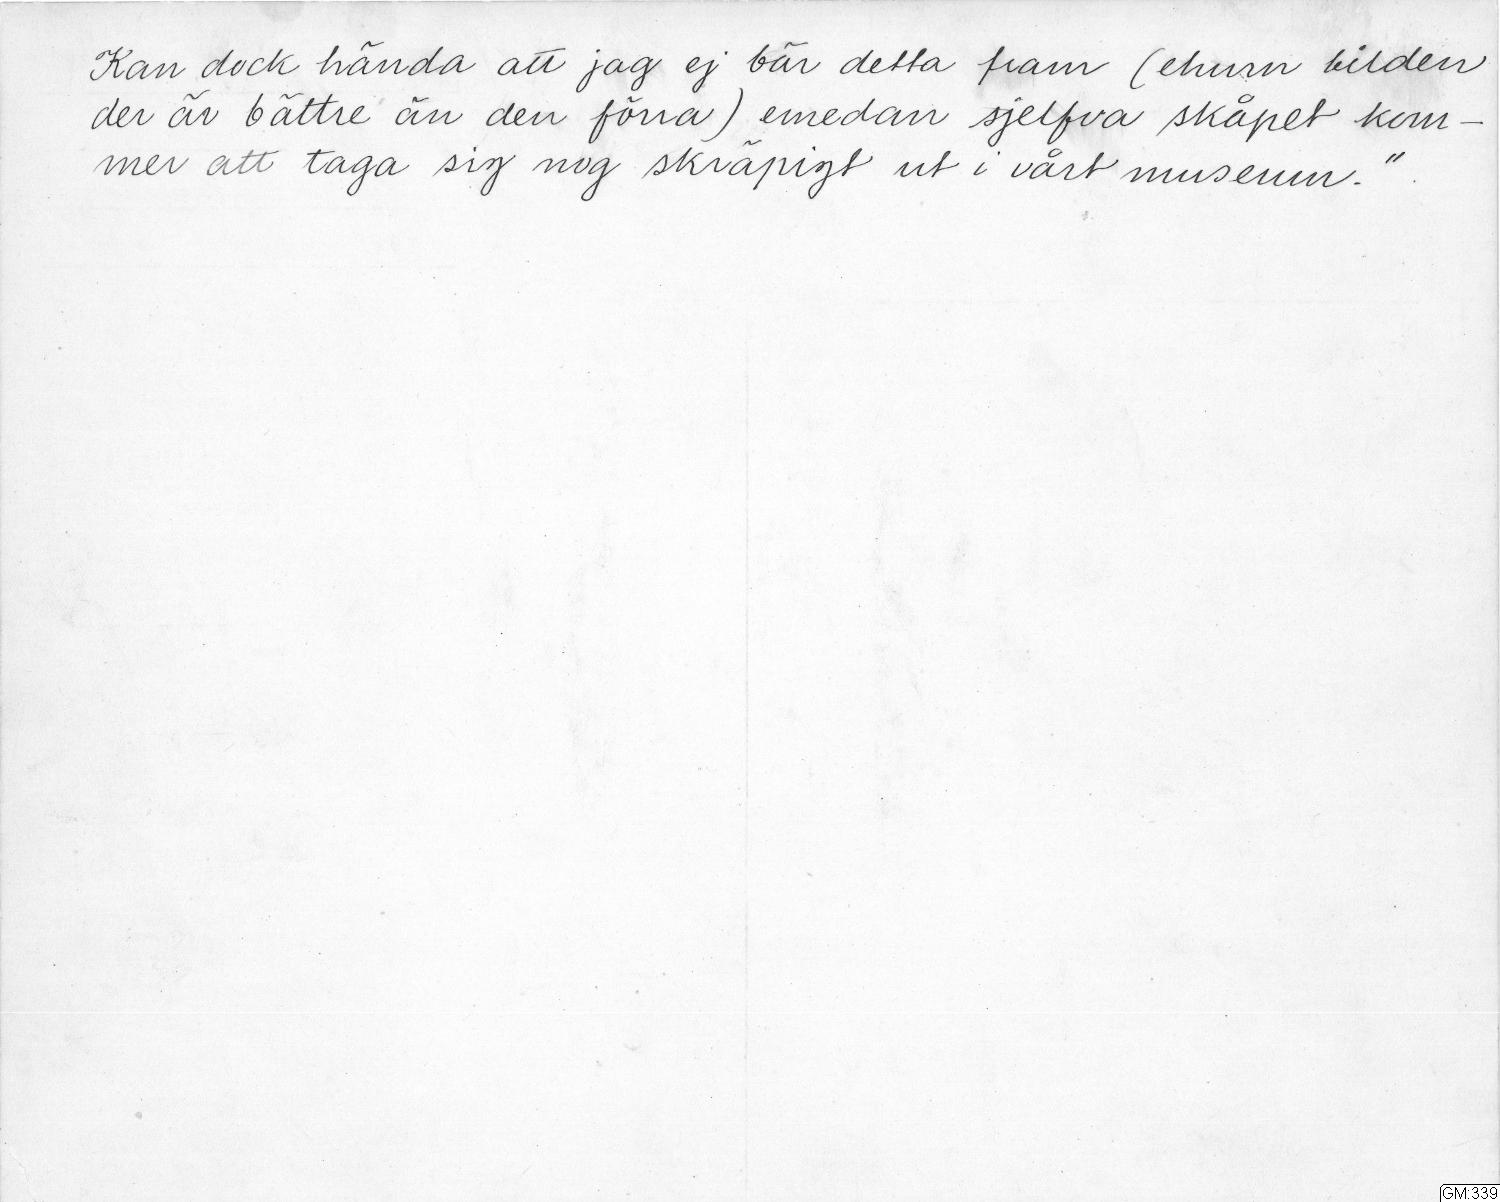 Kan dock hända att jag ej bär detta fram (ehuru bilden
der är bättre än den förra) emedan sjelfva skåpet kom-
mer att taga sig nog skräpigt ut i vårt museum."
GM:339